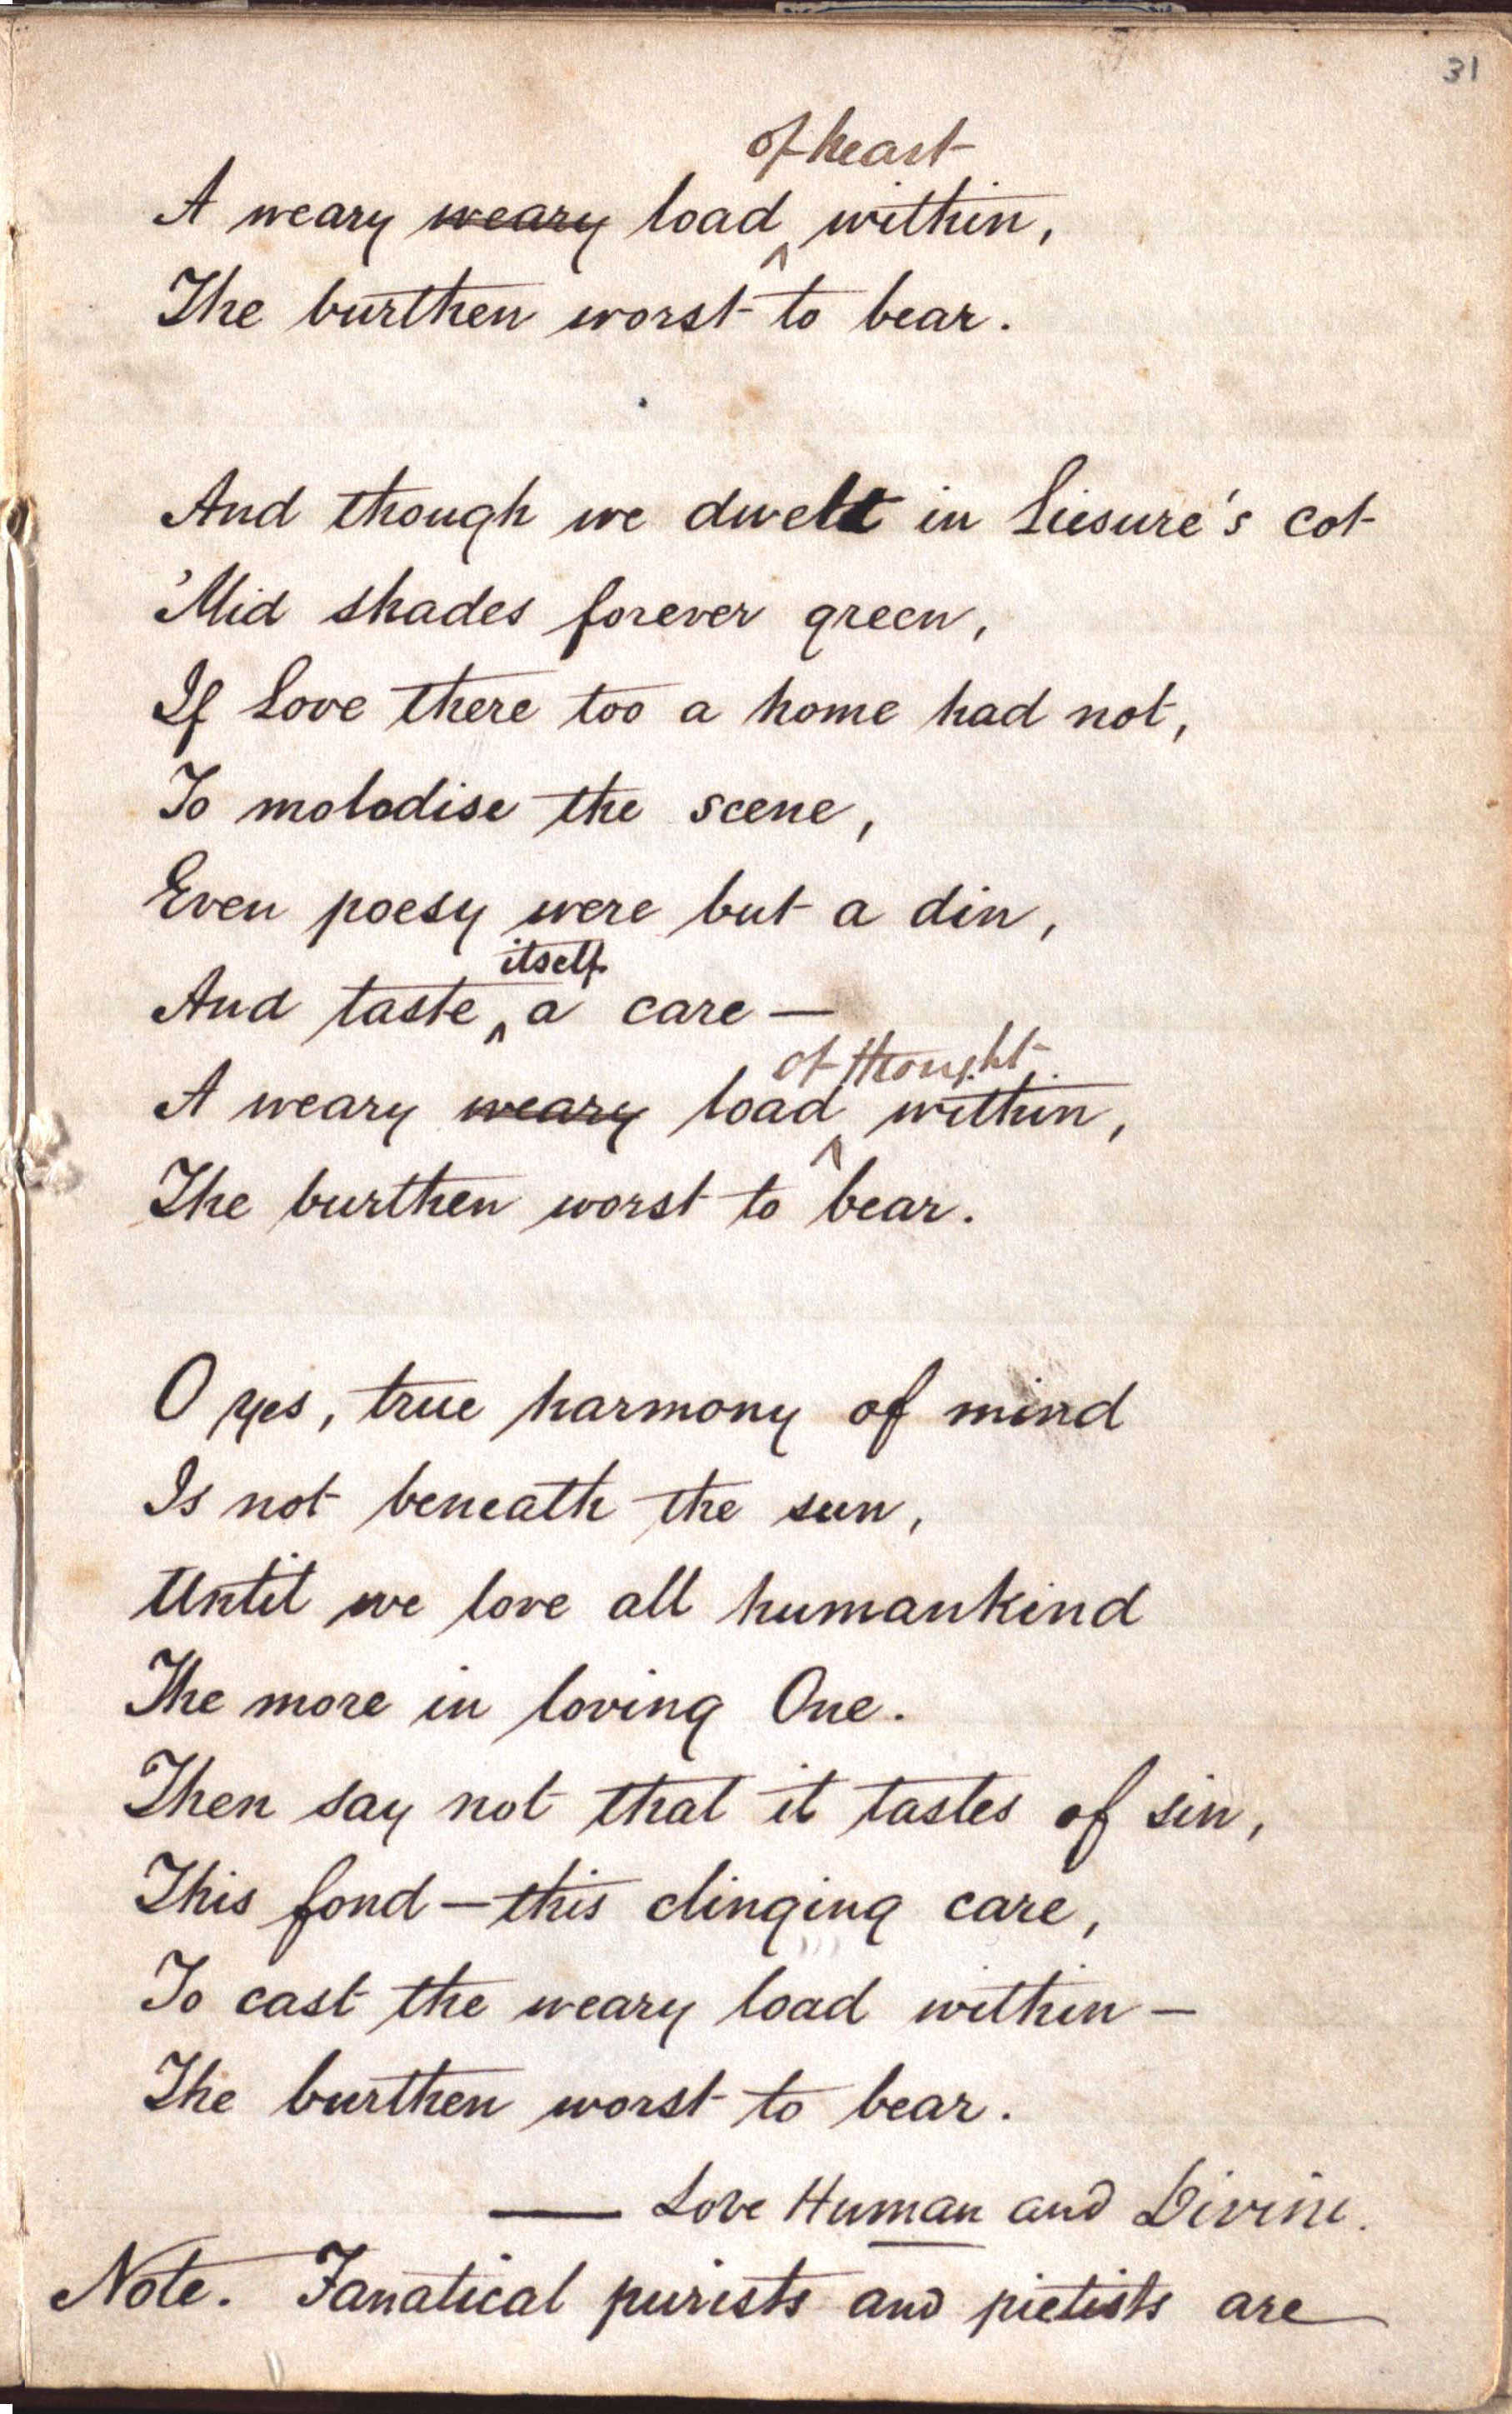 31
of heart
A weary weary load ^ within,
The burthen worst to bear.
And though we dwelt in Liesure's cot
'Mid shades forever green,
If Love there too a home had not,
To molodise the scene,
Even poesy were but a din,
itself
And taste ^ a care —
of thought
A weary weary load ^ within,
The burthen worst to bear.
O yes, true harmony of mind
Is not beneath the sun,
Until we love all humankind
The more in loving One.
Then say not that it tastes of sin,
This fond — this clinging care,
To cast the weary load within —
The burthen worst to bear.
— Love Human and Divine.
Note. Fanatical purists and pietists are